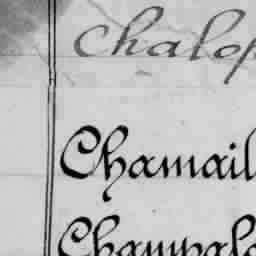 Chalop
Chamail
Champalo